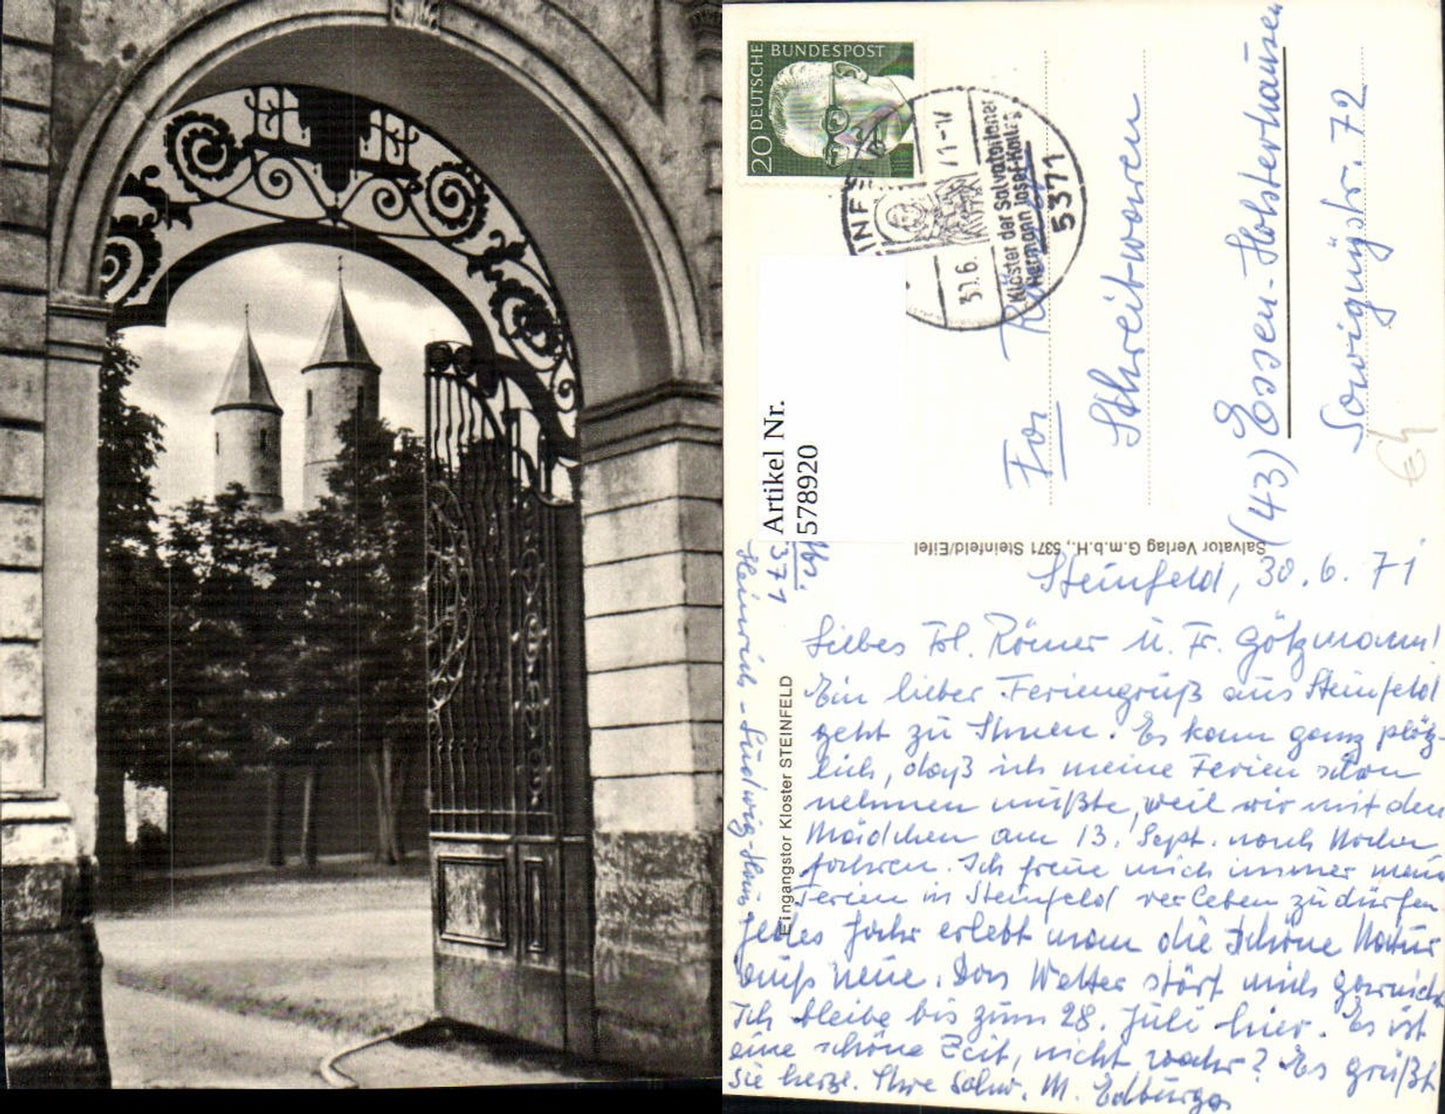 DEUTSCHE BUNDESPOST
20
71-17
31.6.
Kloster der Salvatorianer
Hermann Josef-Kolleg
5371
Artikel Nr.
578920
Schreibwaren
(43) Essen-Holsterhausen
72
Salvator Verlag G.m.b.H., 5371 Steinfeld/Eifel
Eingangstor Kloster STEINFELD
Steinfeld, 30.6.71
Liebes Frl. Römer u. Fr. Götzmann!
Ein lieber Feriengruß aus Steinfeld
geht zu Ihnen. Es kam ganz plötz-
lich, daß ich meine Ferien schon
nehmen mußte, weil wir mit den
Mädchen am 13. Sept. nach
fahren. Ich freue mich immer meine
Ferien in Steinfeld verleben zu dürfen.
Jedes Jahr erlebt man die schöne Natur
aufs neue. Das Wetter stört mich garnicht
Ich bleibe bis zum 28. Juli hier. Es ist
eine schöne Zeit, nicht wahr? Es grüßt
Sie herzl. Ihre Schw. M. Edburga
Abs.
5371
Heinrich-Ludwig-Haus